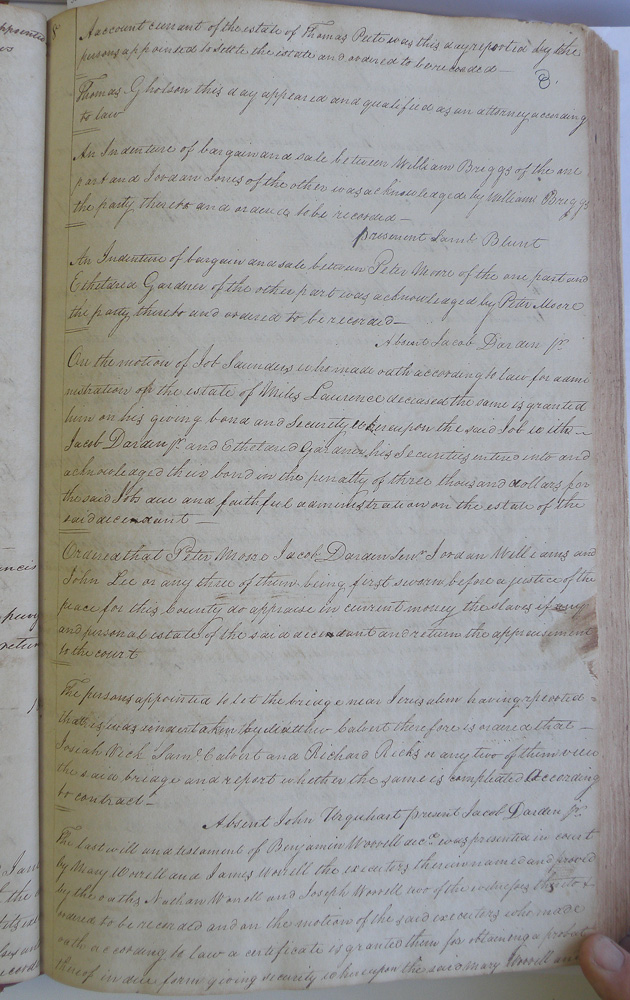 Aaccount currant of the estate of Thomas Pete was this day reported by the
persons appointed to settle the estate and ordered to be recorded —
Thomas Gholson this day appeared and qualified as an attorney according
to law
An Indenture of bargain and sale between William Briggs of the one
part and Jordan Jones of the other was acknowledged by William Briggs
the party thereto and ordered to be recorded —
present Saml Blunt
An Indenture of bargain and sale between Peter Moore of the one part and
Etheldred Gardner of the other part was acknowledged by Peter Moore
the party thereto and ordered to be recorded —
Absent Jacob Darden jr
On the motion of Job Saunders who made oath according to law for admi
nistration on the estate of Miles Laurence deceased the same is granted
him on his giving bond and Security whereupon the said Job with —
Jacob Darden jr and Etheldred Gardner his Securities entered into and
acknowledged their bond in the penalty of three thousand dollars for
the said Jobs due and faithful administration on the estate of the
said decendant —
Ordered that Peter Moore Jacob Darden Senr Jordan Williams and
John Lee or any three of them being first sworn before a justice of the
peace for this County do appraise in current money the slaves if any
and personal estate of the said decendant and return the appraisement
to the court
The persons appointed to let the bridge near Jerusalem having reported
that is was undertaken by Matthew Calvert therefore is ordered that —
Josiah Vick Saml Calvert and Richard Ricks or any two of them view
the said bridge and report whether the same is compleated According
to contract —
Absent John Urquhart present Jacob Darden jr
The last will and testament of Benjamin Worrell decd was presented in court
by Mary Worrell and James Worrell the executors therein named and proved
by the oaths Nathan Worrell and Joseph Worrell two of the thereto &
ordered to be recorded and on the motion of the said executors who made
oath according to law a certificate is granted them for obtaining a probat
thereof in due form giving security whereupon the said Mary Worrell and